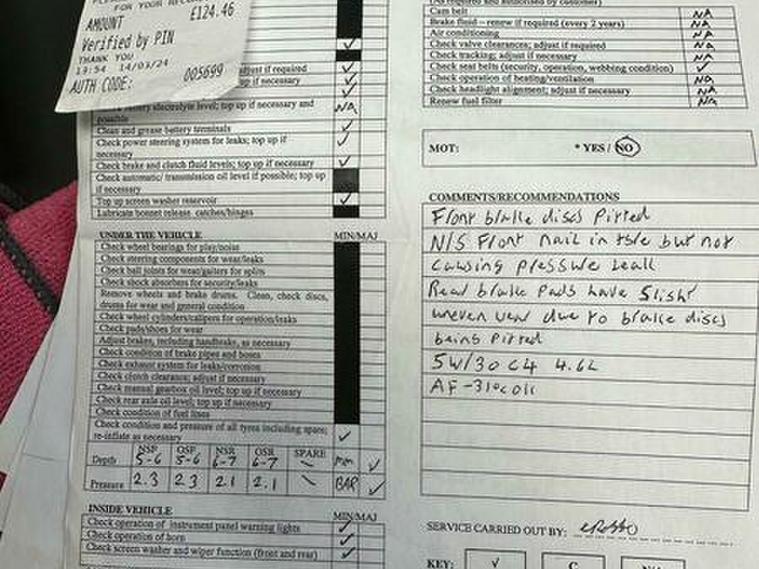 FOR YOUR RECORDS
AMOUNT £124.46
Verified by PIN
THANK YOU
13:54 14/03/24
AUTH CODE: 005699
✓
adjust if required ✓
top up if necessary ✓
✓
battery electrolyte level; top up if necessary and possible NA
Clean and grease battery terminals ✓
Check power steering system for leaks; top up if necessary ✓
Check brake and clutch fluid levels; top up if necessary ✓
Check automatic/ transmission oil level if possible; top up if necessary
Top up screen washer reservoir ✓
Lubricate bonnet release catches/hinges
UNDER THE VEHICLE MIN/MAJ
Check wheel bearings for play/noise
Check steering components for wear/leaks
Check ball joints for wear/gaiters for splits
Check shock absorbers for security/leaks
Remove wheels and brake drums. Clean, check discs, drums for wear and general condition
Check wheel cylinders/calipers for operation/leaks
Check pads/shoes for wear
Adjust brakes, including handbrake, as necessary
Check condition of brake pipes and hoses
Check exhaust system for leaks/corrosion
Check clutch clearance; adjust if necessary
Check manual gearbox oil level; top up if necessary
Check rear axle oil level; top up if necessary
Check condition of fuel lines
Check condition and pressure of all tyres including spare;
re-inflate as necessary ✓
NSF OSF NSR OSR SPARE
Depth 5-6 5-6 6-7 6-7 \ mm ✓
Pressure 2.3 2.3 2.1 2.1 \ BAR ✓
INSIDE VEHICLE MIN/MAJ
Check operation of instrument panel warning lights ✓
Check operation of horn ✓
Check screen washer and wiper function (front and rear) ✓
(As required and authorised by customer)
Cam belt NA
Brake fluid – renew if required (every 2 years) NA
Air conditioning NA
Check valve clearances; adjust if required NA
Check tracking; adjust if necessary NA
Check seat belts (security, operation, webbing condition) ✓
Check operation of heating/ventilation NA
Check headlight alignment; adjust if necessary NA
Renew fuel filter NA
MOT: * YES / NO
COMMENTS/RECOMMENDATIONS
Front brake discs Pitted
N/S Front nail in tyre but not
causing pressure leak
Rear brake Pads have slight
uneven wear due to brake discs
being Pitted
5W/30 C4 4.6L
AF-310COIL
SERVICE CARRIED OUT BY:
KEY: ✓ C N/A